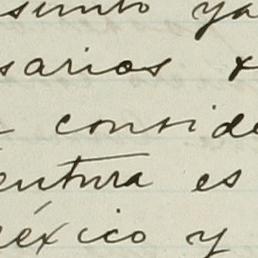 asunto ya
sarios
conside
entura es
éxico y